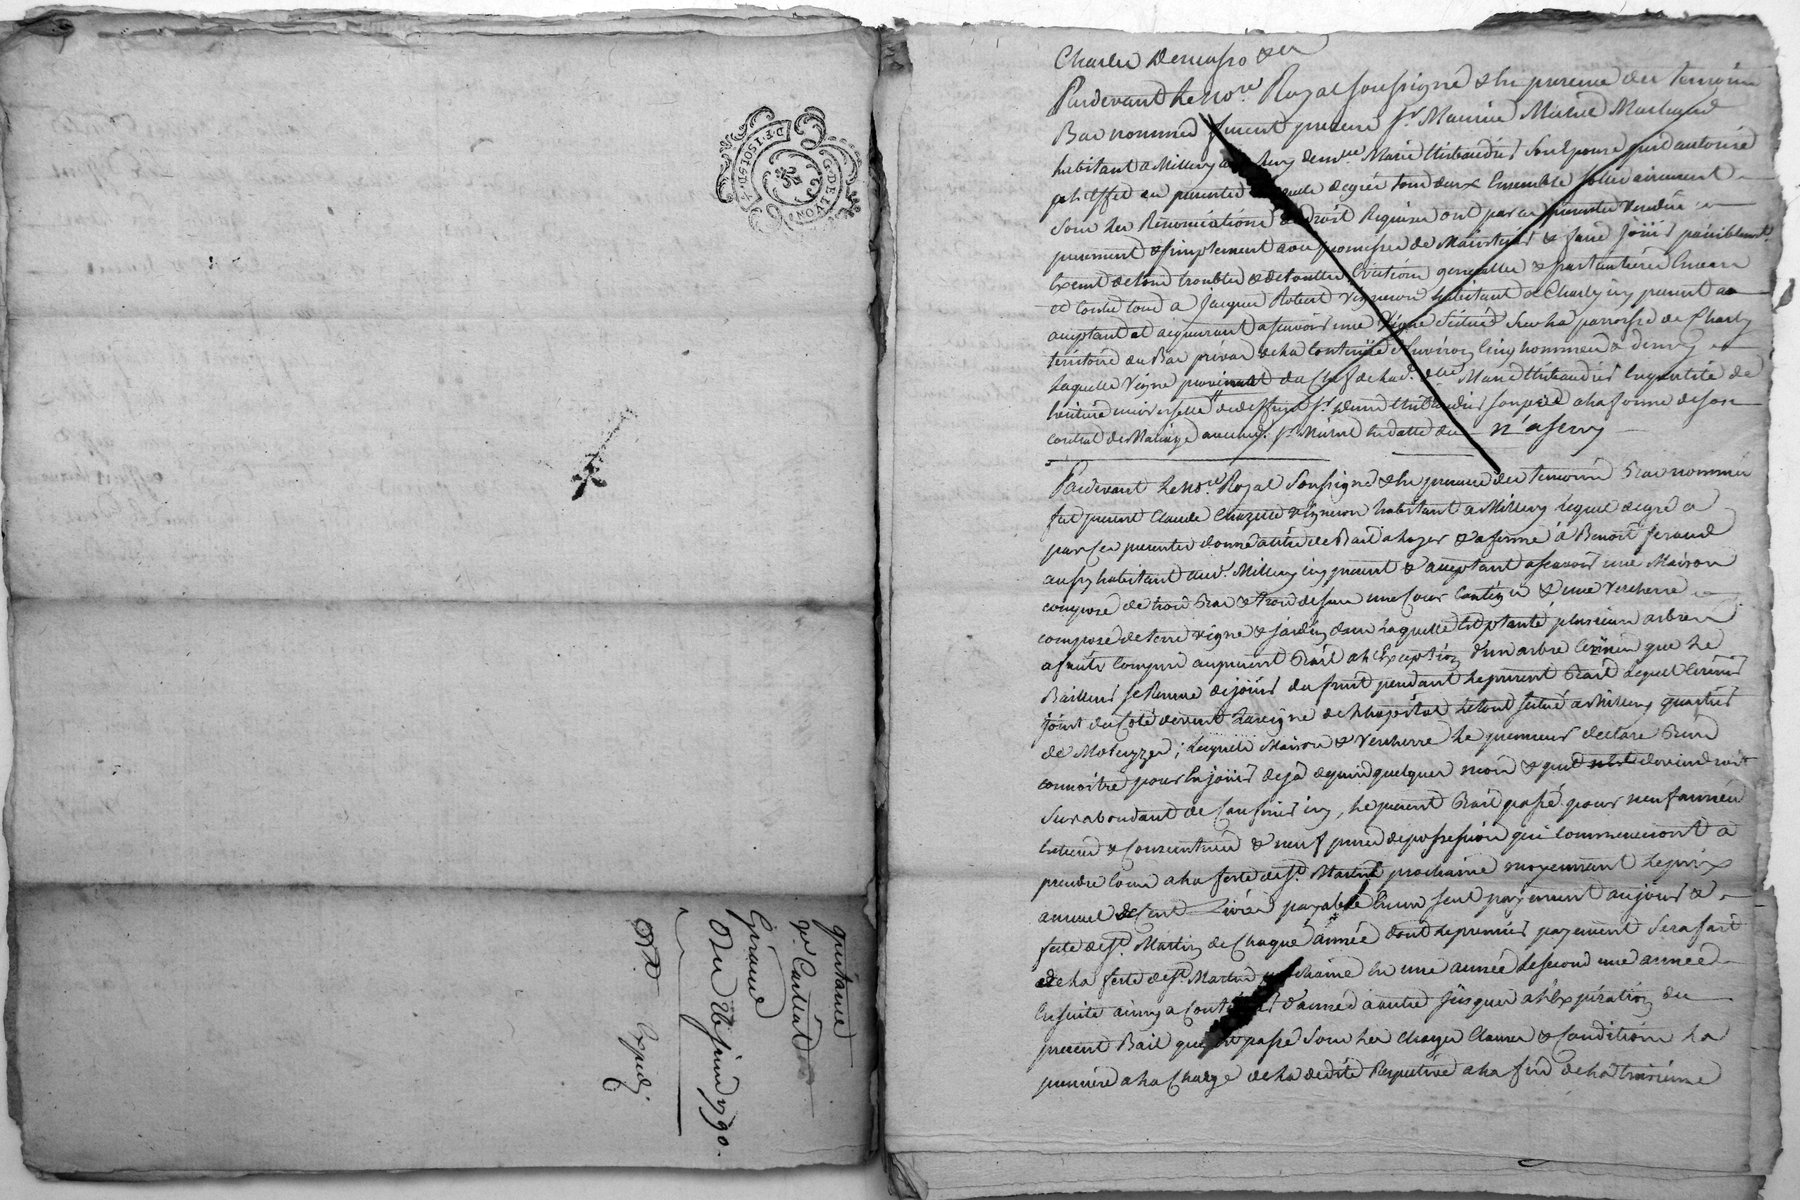 G. DE LYON
D.F. 1 SOL 8 D.T.
quittance
Giraud
Du 26 juin 1790.
Expedj
Pardevant le No.re Royal soussigné & En presence des temoins
Bas nommes furent presens Sr. Maurice Michel Marchand
habitant a Millery & Marie Thibaudier Son Epouse
a l'Effet des presentes de gré tous deux Ensemble solidairement
Sous les Renonciations de droit Requises ont par ces presentes vendu
purement & simplement avec promesse de Maintenir & faire jouir paisiblement
Exempt de tous troubles & de toutes Evictions generalles & particulieres Envers
et Contre tous a Jacques Robert vigneron habitant a Charly icy present
acceptant et acquerant ascavoir une vigne Située Sur la parroisse de Charly
territoire du Bas privas de la Contenue d'Environ Cinq hommées & demy
Laquelle vigne du Chef de lad. dlle Marie Thibaudier En qualité de
heritiere universelle de deffunt Sr. Thibaudier son pere a la forme de son
contrat de Mariage avec led. Sr. Michel En datte du n'a servy
Pardevant le No.re Royal Soussigné & En presence des temoins Bas nommés
fut present Claude Chazelle vigneron habitant a Millery lequel de gré a
par Ces presentes donné a titre de Bail a loyer & a ferme à Benoit feraud
aussy habitant aud. Millery icy present & acceptant ascavoir une Maison
composé de trois Bas & trois dessus une Cour Contigue & une vercherre
composé de terre vigne & jardin dans laquelle Est planté plusieurs arbres
a fruits Compris au present Bail a l'Exception d'un arbre Cerisier que le
Bailleur se Reserve de jouir du fruit pendant le present Bail lequel Cerisier
joint du Coté devent la vigne de l'hopital le tout situé a Millery quartier
de ; laquelle Maison & vercherre le preneur declare Bien
connoitre pour En jouir deja depuis quelques mois &
Surabondant de Confiner icy, le present Bail passé pour neuf années
Entieres & Consecutives & neuf prises de possession qui Commenceront a
prendre Cours a la feste de St. Martin prochaine moyennant le prix
annuel de Cent Livres payable En un seul payement au jour &
feste de St. Martin de Chaque année dont le premier payement Sera fait
de la feste de St. Martin prochaine En une année le second une année
Ensuite ainsy a Continuer d'année a autre jusques a l'Expiration du
present Bail passé Sous les Charges Clauses & Conditions la
premiere a la Charge de la dedite Respective a la fin de la troisieme